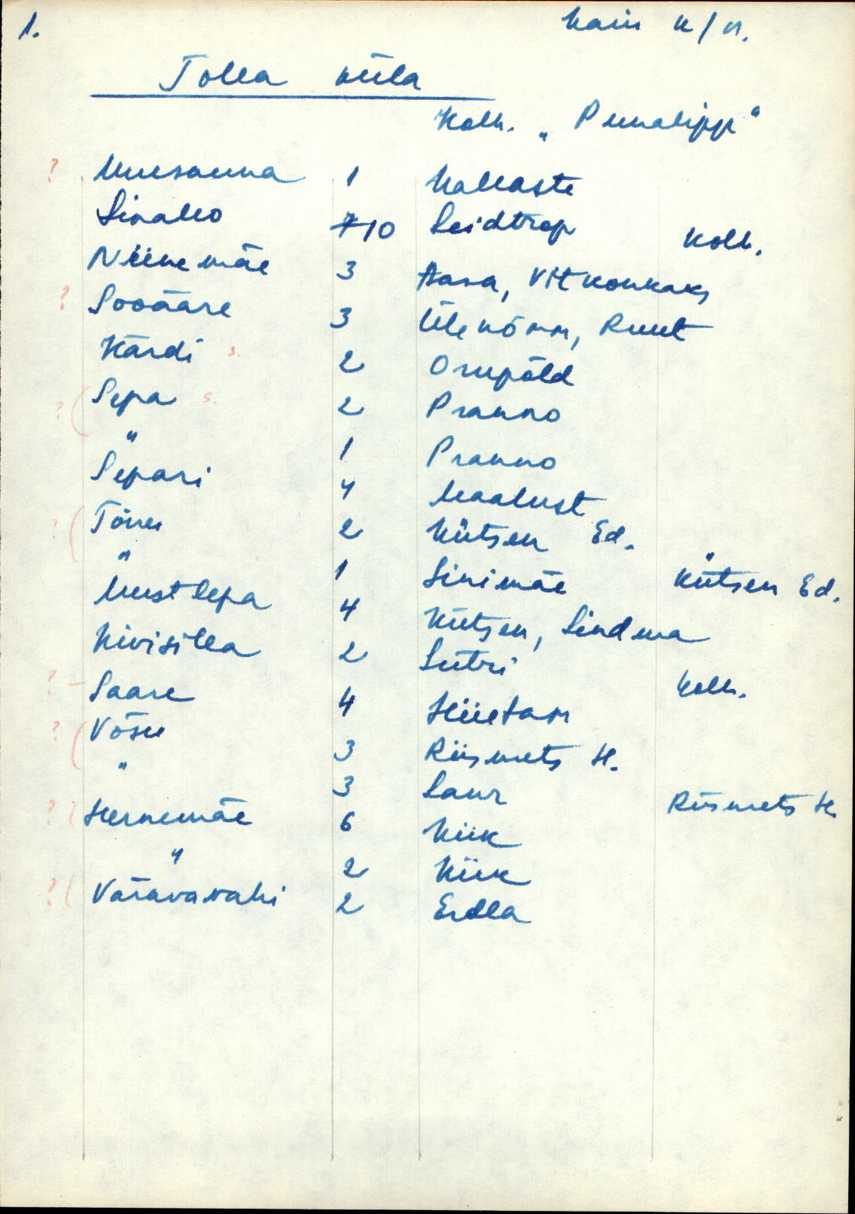 1.
Kolla küla
Kolh. "Punalipp"
? Uuesauna 1 Kallaste
Sinallo 7 10 Seidtrop Kolh.
Niinemäe 3 Aasa, Vitkonkaks
? Sooääre 3 Ülenõmm, Ruut
Kärdi s. 2 Orupõld
? ( Sepa s. 2 Pranno
" 1 Pranno
Separi 4 Maalust
? ( Tõnu 2 Kütsen Ed.
" 1 Sinimäe Kütsen Ed.
Mustlepa 4 Kütsen, Lindma
Kivisilla 2 Sutri
? - Saare 4 Hiietam Kolh.
? ( Võsu 3 Riismets H.
" 3 Laur Riismets H.
? ( Hernemäe 6 Kiik
" 2 Kiik
? ( Väravavahi 2 Erdla